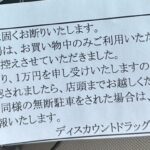 は固くお断りいたします。
場は、お買い物中のみご利用いただ
控えさせていただきました。
り、1万円を申し受けいたしますの
されましたら、店頭までお越しくだ
同様の無断駐車をされた場合は、
報いたします。
ディスカウントドラッグ